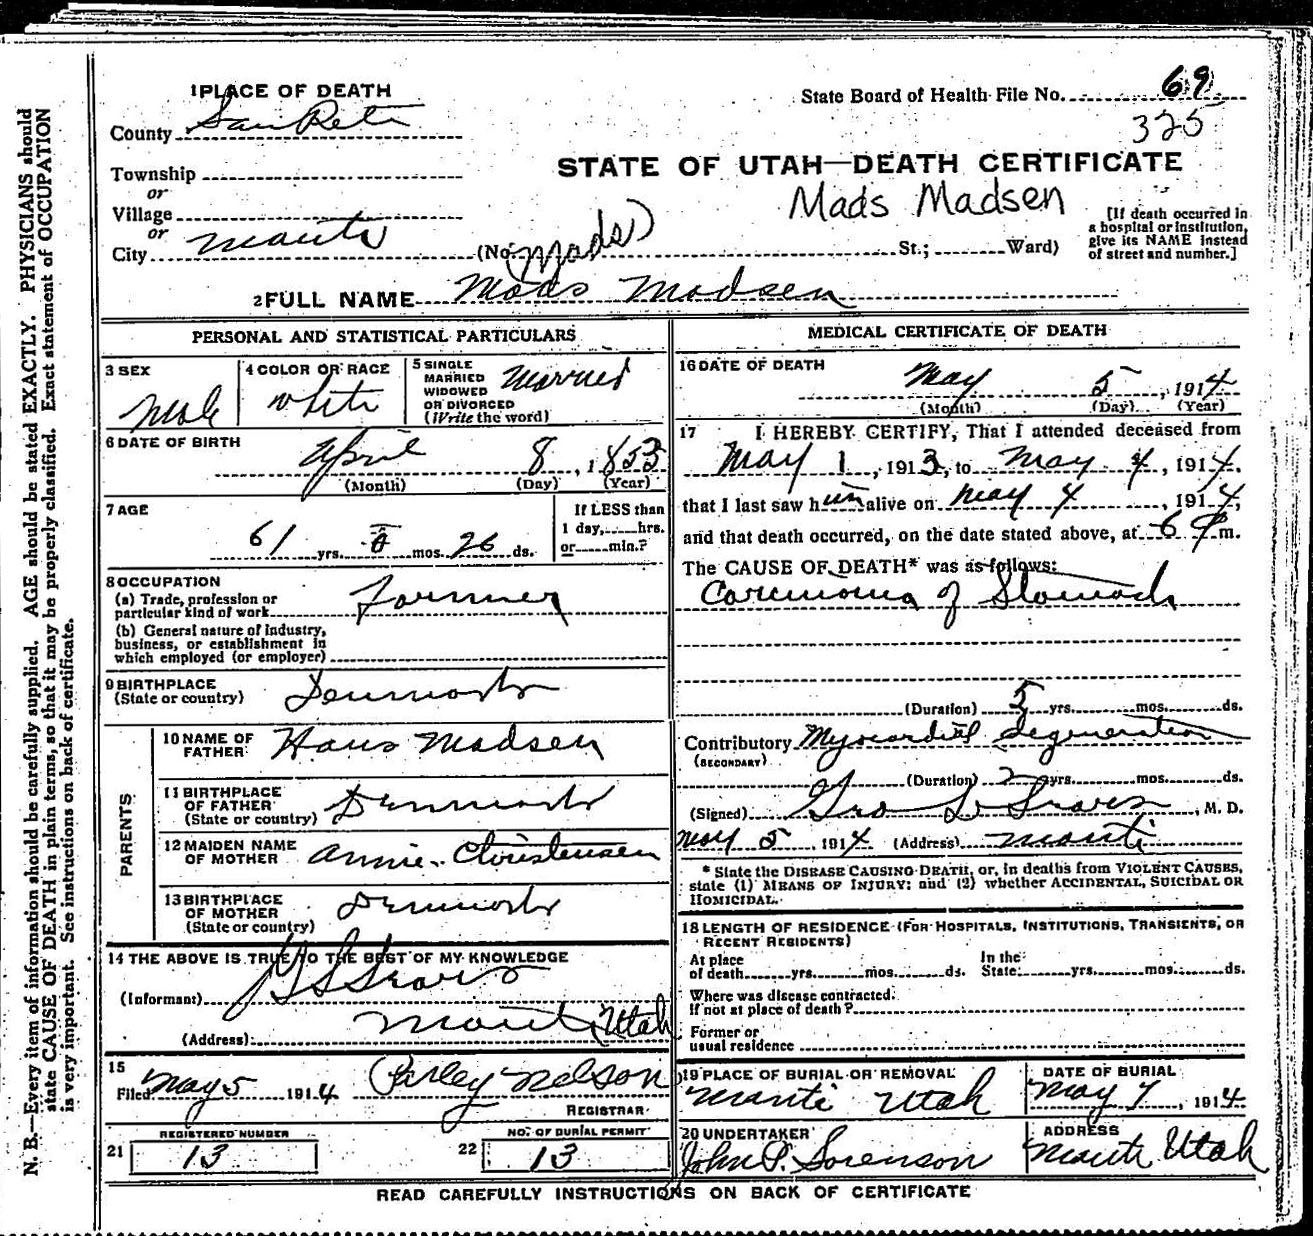 1 PLACE OF DEATH
State Board of Health File No. 69
325
County SanPete
STATE OF UTAH—DEATH CERTIFICATE
Township
or
Village
or
City Manti
Mads Madsen
(No. Mads) St.; Ward)
[If death occurred in
a hospital or institution,
give its NAME instead
of street and number.]
2 FULL NAME Mads Madsen
PERSONAL AND STATISTICAL PARTICULARS
3 SEX
Male
4 COLOR OR RACE
White
5 SINGLE
MARRIED
WIDOWED
OR DIVORCED
(Write the word)
Married
6 DATE OF BIRTH
April 8, 1853
(Month) (Day) (Year)
7 AGE
61 yrs. 0 mos. 26 ds.
If LESS than
1 day, hrs.
or min.?
8 OCCUPATION
(a) Trade, profession or
particular kind of work Farmer
(b) General nature of industry,
business, or establishment in
which employed (or employer)
9 BIRTHPLACE
(State or country) Denmark
PARENTS
10 NAME OF
FATHER Hans Madsen
11 BIRTHPLACE
OF FATHER
(State or country) Denmark
12 MAIDEN NAME
OF MOTHER Annie Christensen
13 BIRTHPLACE
OF MOTHER
(State or country) Denmark
14 THE ABOVE IS TRUE TO THE BEST OF MY KNOWLEDGE
(Informant)
(Address) Manti Utah
15
Filed May 5 1914 Parley Nelson
REGISTRAR
REGISTERED NUMBER
21 13
NO. OF BURIAL PERMIT
22 13
MEDICAL CERTIFICATE OF DEATH
16 DATE OF DEATH
May 5, 1914
(Month) (Day) (Year)
17 I HEREBY CERTIFY, That I attended deceased from
May 1, 1913, to May 4, 1914,
that I last saw him alive on May 4, 1914,
and that death occurred, on the date stated above, at 6 P m.
The CAUSE OF DEATH* was as follows:
Carcinoma of Stomach
(Duration) 5 yrs. mos. ds.
Contributory Myocardial Degeneration
(SECONDARY)
(Duration) 2 yrs. mos. ds.
(Signed) Geo L Sears, M. D.
May 5, 1914 (Address) Manti
* State the DISEASE CAUSING DEATH, or, in deaths from VIOLENT CAUSES,
state (1) MEANS OF INJURY; and (2) whether ACCIDENTAL, SUICIDAL OR
HOMICIDAL.
18 LENGTH OF RESIDENCE (FOR HOSPITALS, INSTITUTIONS, TRANSIENTS, OR
RECENT RESIDENTS)
At place
of death yrs. mos. ds.
In the
State yrs. mos. ds.
Where was disease contracted,
If not at place of death?
Former or
usual residence
19 PLACE OF BURIAL OR REMOVAL
Manti Utah
DATE OF BURIAL
May 7, 1914
20 UNDERTAKER
John P. Sorenson
ADDRESS
Manti Utah
READ CAREFULLY INSTRUCTIONS ON BACK OF CERTIFICATE
N. B.—Every item of information should be carefully supplied. AGE should be stated EXACTLY. PHYSICIANS should
state CAUSE OF DEATH in plain terms, so that it may be properly classified. Exact statement of OCCUPATION
is very important. See instructions on back of certificate.